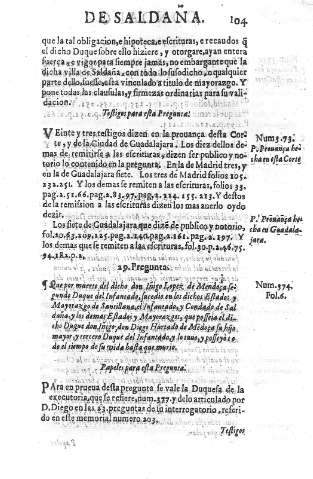 DE SALDAÑA. 104
que la tal obligacion, e hipoteca, e escrituras, e recaudos q̃
el dicho Duque sobre ello hiziere, y otorgare, ayan entera
fuerça, e vigor para siempre jamas, no embargante que la
dicha villa de Saldaña, con todo lo susodicho, o qualquier
parte dello, fuesse, está vinculado a titulo de mayorazgo. Y
pone todas las clausulas, y firmezas ordinarias para su vali-
dacion.
Testigos para esta Pregunta.
VEinte y tres testigos dizen en la prouança desta Cor-
te, y de la Ciudad de Guadalajara. Los diez dellos de
mas de remitirse a las escrituras, dizen ser publico y no-
torio lo contenido en la pregunta. En la de Madrid tres, y
en la de Guadalajara siete. Los tres de Madrid folios 105.
232. 251. Y los demas se remiten a las escrituras, folios 33.
pag. 2. 51. 66. pag. 2. 83. 97. pag. 2. 124. 155. 223. Y destos
de la remission a las escrituras dizen los mas auerlo oydo
dezir.
Num. 373.
P. Prouança he-
cha en esta Corte
Los siete de Guadalajara que dizẽ de publico y notorio,
fol. 20. 63. 109. 125. pag. 2. 140. pag. 2. 161. pag. 2. 197. Y
los demas que se remiten a las escrituras, fol. 30. p. 2. 46. 75.
94. 182. p. 2.
P. Prouança he-
cha en Guadala-
jara.
29. Pregunta.
¶ Que por muerte del dicho don Iñigo Lopez de Mendoça se-
gundo Duque del Infantado, sucedio en los dichos Estados, y
Mayorazgo de Santillana, y del Infantado, y Condado de Sal
daña, y los demas Estados, y Mayorazgos, que posseia el di-
cho Duque don Iñigo, don Diego Hurtado de Mẽdoça su hijo
mayor, y tercero Duque del Infantado, y lo tuuo, y posseyò to-
do el tiempo de su vida hasta que murio.
Num. 374.
Pol. 6.
Papeles para esta Pregunta.
PAra en prueua desta pregunta se vale la Duquesa de la
executoria, que se refiere, num. 377. y de lo articulado por
D. Diego en las 23. preguntas de su interrogatorio, referi-
do en este memorial, numero 203.
Testigos